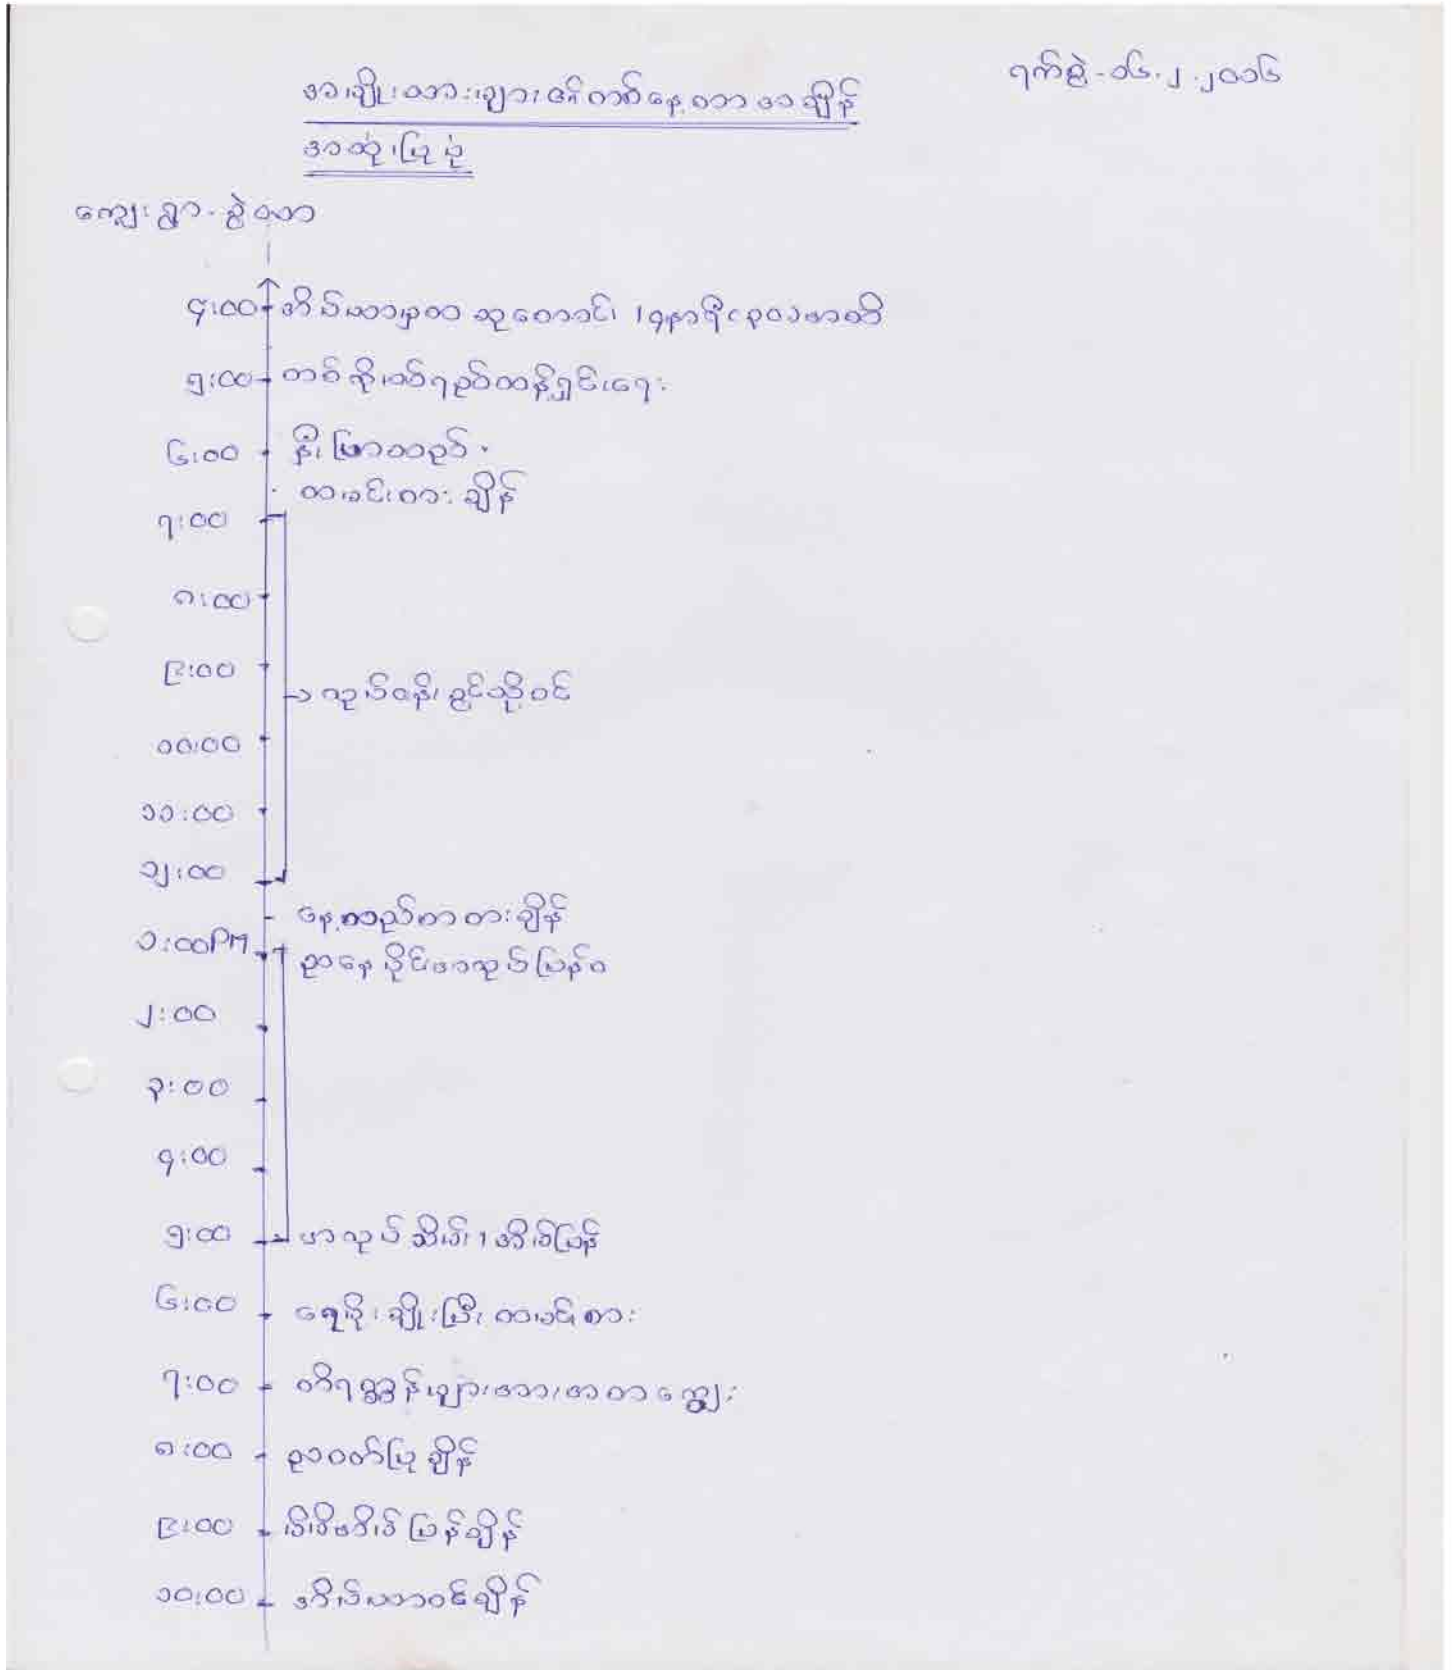 ရက်စွဲ-၁၆.၂.၂၀၁၆
အမျိုးသားများ၏ တစ်နေ့တာ အချိန်
အသုံးပြုပုံ
ကျေးရွာ - စွဲသာ
၄:၀၀ အိပ်ယာမှထ ဆုတောင်း၊
၅:၀၀ တစ်ကိုယ်ရည်သန့်ရှင်းရေး
၆:၀၀ နှီးဖြာသည်။
ထမင်းစားချိန်
၇:၀၀
၈:၀၀
၉:၀၀
လုပ်ငန်းခွင်သို့ဝင်
၁၀:၀၀
၁၁:၀၀
၁၂:၀၀
နေ့လည်စာစားချိန်
၁:၀၀PM ညနေပိုင်းအလုပ်ပြန်ဝ
၂:၀၀
၃:၀၀
၄:၀၀
၅:၀၀ အလုပ်သိမ်း၊ အိမ်ပြန်
၆:၀၀ ရေမိုးချိုးပြီး ထမင်းစား
၇:၀၀ တိရစ္ဆာန်များအားအစာကျွေး
၈:၀၀ ညဝတ်ပြုချိန်
၉:၀၀ မိမိအိမ်ပြန်ချိန်
၁၀:၀၀ အိပ်ယာဝင်ချိန်